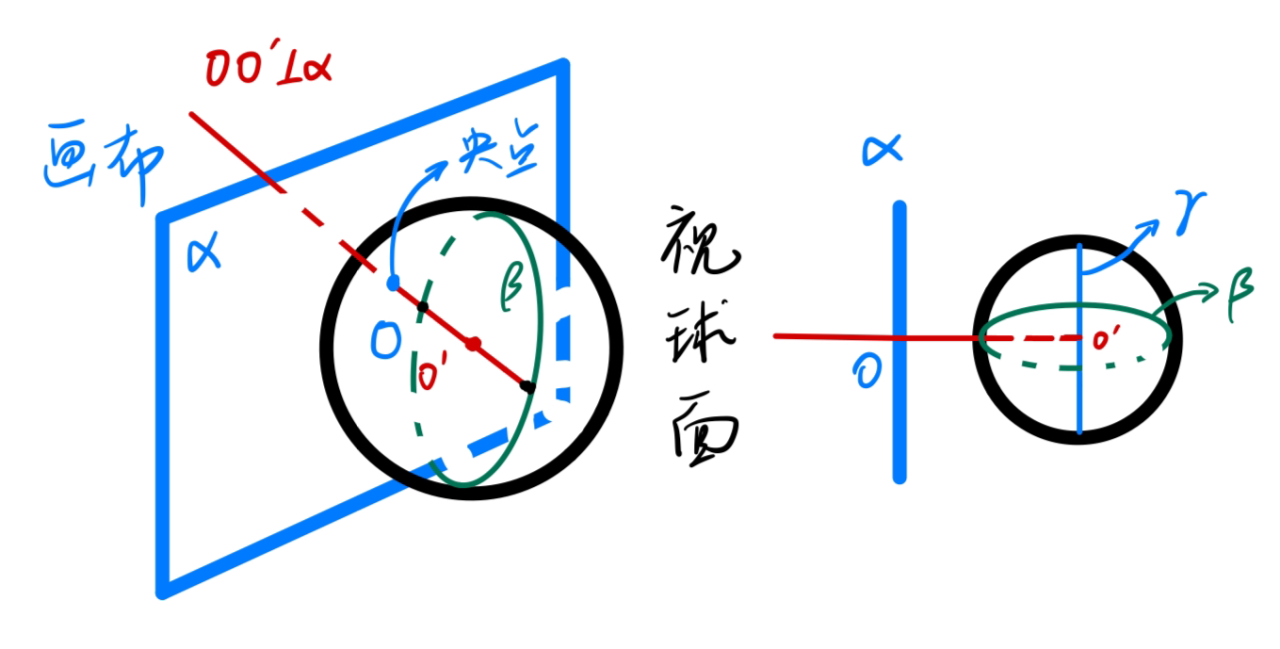 OO'⊥α
画布
央点
α
β
O
O'
视
球
面
α
γ
β
O'
O